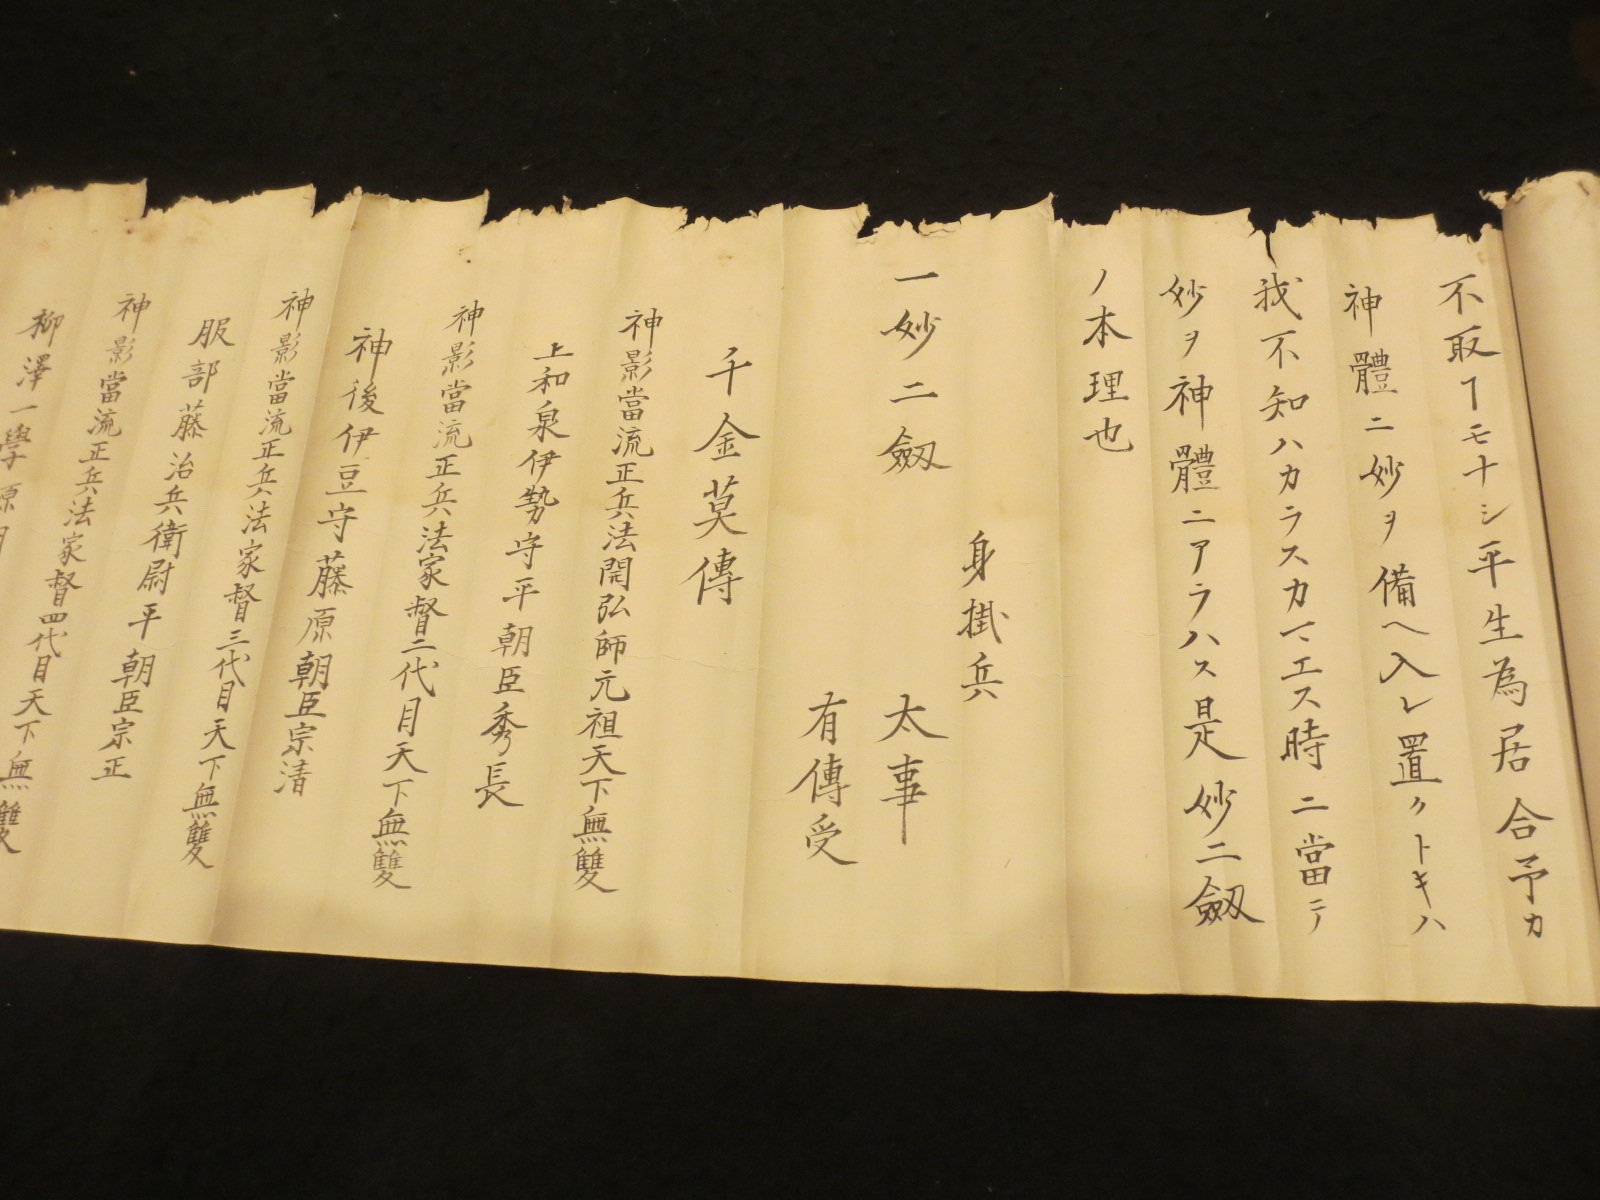 不取ヿモナシ平生為居合予カ
神體ニ妙ヲ備ヘ入レ置クトキハ
我不知ハカラスカマエス時ニ當テ
妙ヲ神體ニアラハス是妙二劔
ノ本理也
身掛兵
一妙二劔 太事
有傳受
千金莫傳
神影當流正兵法開弘師元祖天下無雙
上和泉伊勢守平朝臣秀長
神影當流正兵法家督二代目天下無雙
神後伊豆守藤原朝臣宗清
神影當流正兵法家督三代目天下無雙
服部藤治兵衛尉平朝臣宗正
神影當流正兵法家督四代目天下無雙
柳澤一學源